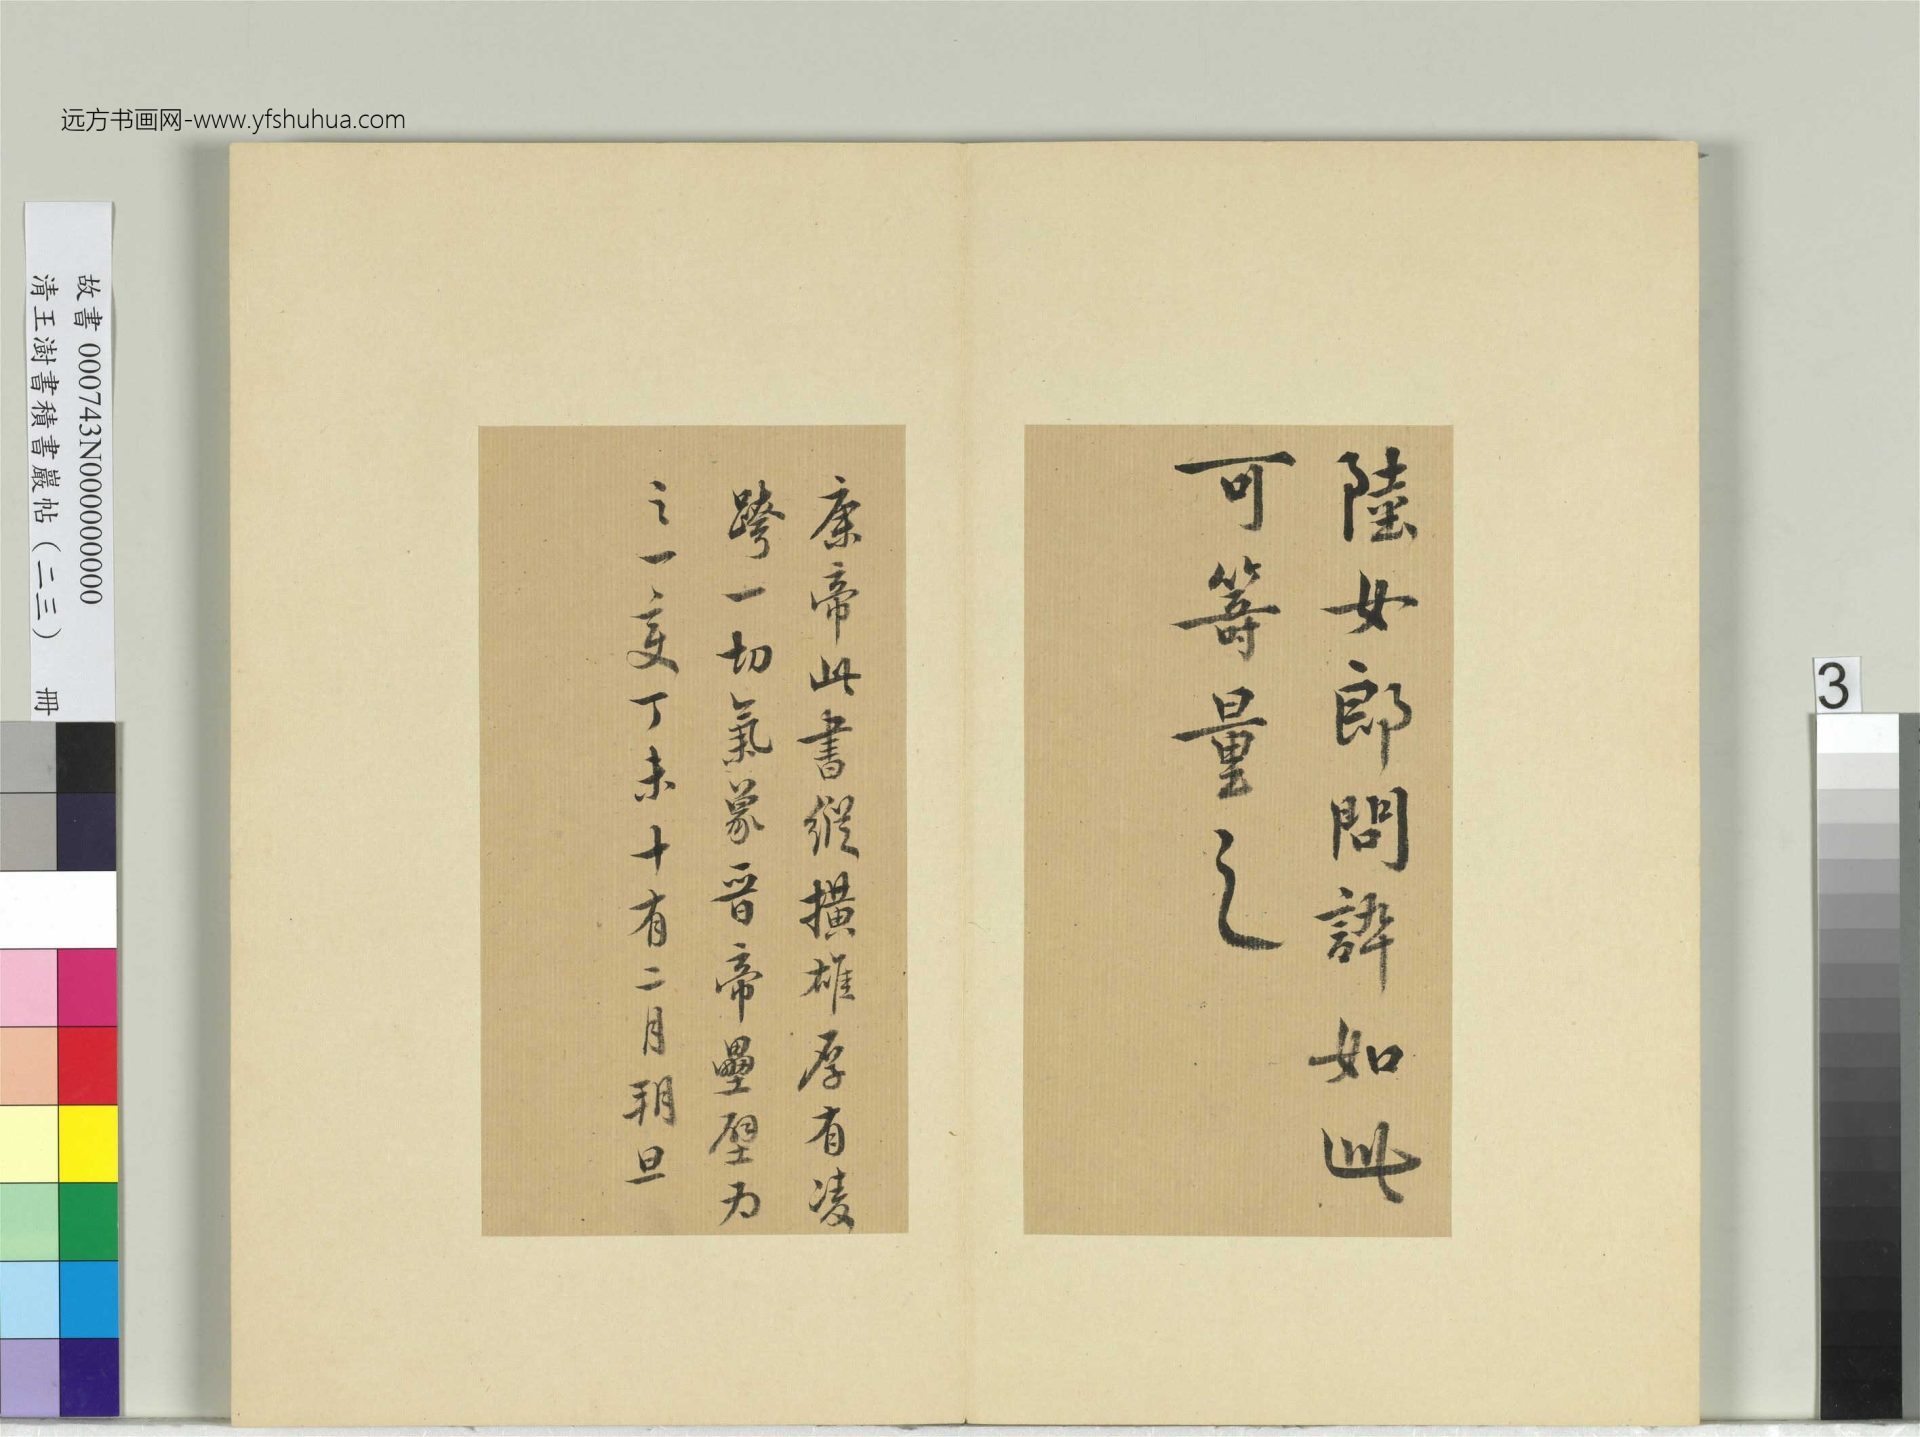 远方书画网-www.yfshuhua.com
故書 000743N000000000
清王澍書積書巖帖(二三) 冊
3
陸女郎問訹如此
可籌量之
康帝此書縱橫雄厚有凌
跨一切氣象晉帝壘壁為
之一變丁未十有二月朔旦